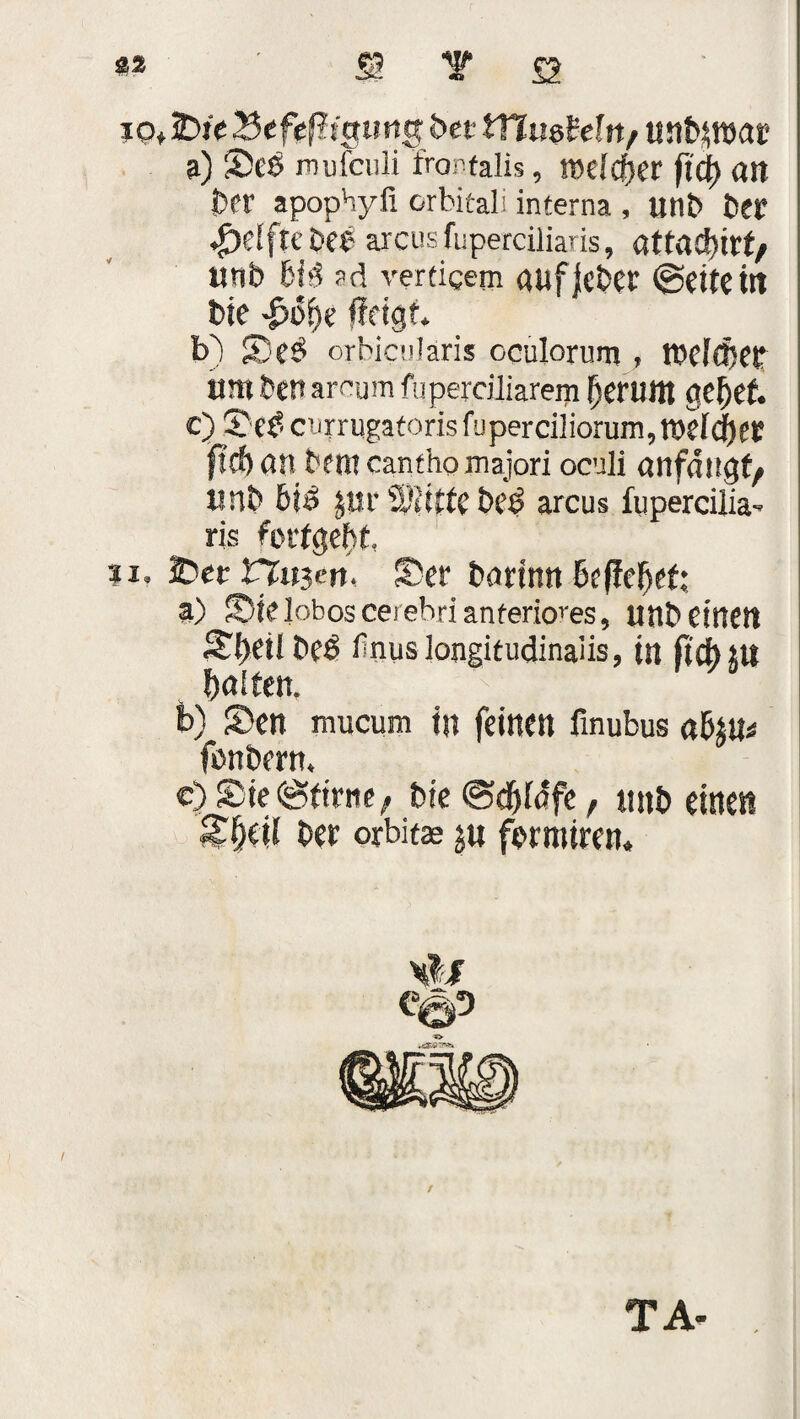 22
10. Die Befestigung der Muskeln, und zwar
a) Des musculi frontalis, welcher sich an
der apophysi orbitali interna, und der
Helfte des arcus superciliaris, attachirt,
und bis ad verticem auf jeder Seite in
die Höhe steigt.
b) Des orbicularis oculorum, welcher
um den arcum superciliarem herum gehet.
c) Des currugatoris superciliorum, welcher
sich an dem cantho majori oculi anfängt,
und bis zur Mitte des arcus supercilia-
ris fortgeht.
11. Der Nuzen. Der darinn bestehet:
a) Die lobos cerebri anteriores, und einen
Theil des sinus longitudinalis, in sich zu
halten.
b) Den mucum in seinen sinubus abzu-
sondern.
c) Die Stirne, die Schläfe, und einen
Theil der orbitæ zu formiren.
TA-